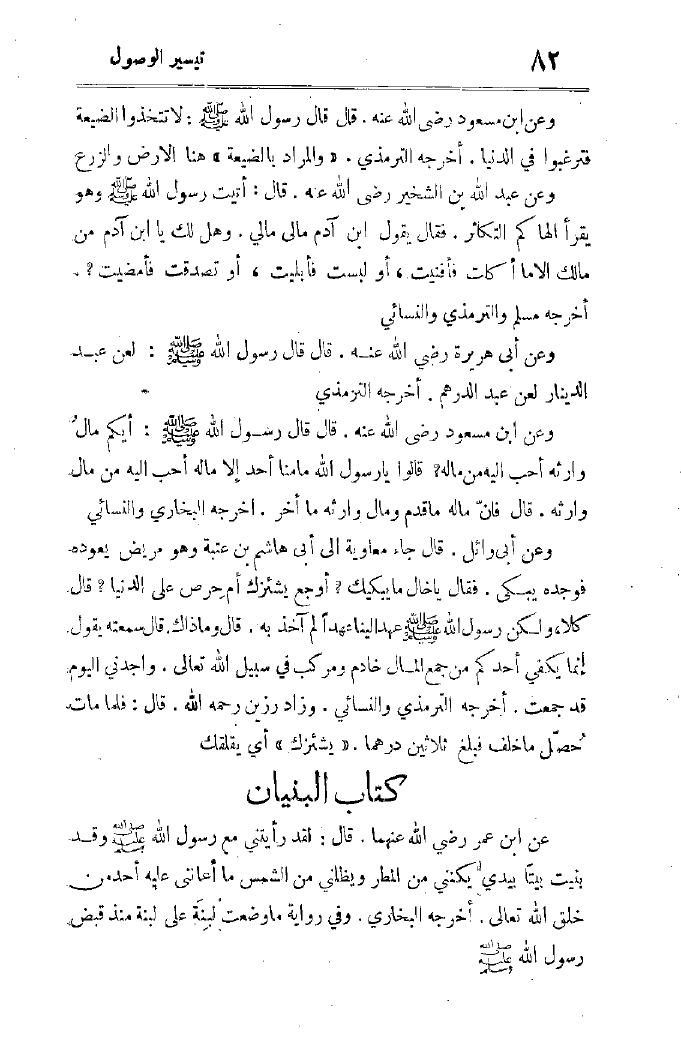 ٨٢
تيسير الوصول
وعن ابن مسعود رضى الله عنه . قال قال رسول الله ﷺ : لا تتخذوا الضيعة
فترغبوا في الدنيا . أخرجه الترمذي . « والمراد بالضيعة » هنا الارض والزرع
وعن عبد الله بن الشخير رضى الله عنه . قال : أتيت رسول الله ﷺ وهو
يقرأ الها كم التكاثر . فقال يقول ابن آدم مالى مالي . وهل لك يا ابن آدم من
مالك الا ما أكلت فأفنيت ، أو لبست فأبليت ، أو تصدقت فأمضيت ? .
أخرجه مسلم والترمذي والنسائي
وعن أبى هريرة رضي الله عنـه . قال قال رسول الله ﷺ : لعن عبـد
الدينار لعن عبد الدرهم . أخرجه الترمذي
وعن ابن مسعود رضى الله عنه . قال قال رسـول الله ﷺ : أيكم مالُ
وارثه أحب اليه من ماله ? قالوا يارسول الله مامنا أحد إلا ماله أحب اليه من مال
وارثه . قال فانّ ماله ماقدم ومال وارثه ما أخر . اخرجه البخاري والنسائي
وعن أبى وائل . قال جاء معاوية الى أبى هاشم بن عتبة وهو مريض يعوده
فوجده يبـكى . فقال ياخال مايبكيك ? أوجع يشئزك أم حرص على الدنيا ? قال
كلا، ولـكن رسول الله ﷺ عهد الينا عهداً لم آخذ به . قال وماذاك. قال سمعته يقول
إنما يكفي أحدكم من جمع المـال خادم ومركب في سبيل الله تعالى . واجدني اليوم
قد جمعت . أخرجه الترمذي والنسائي . وزاد رزين رحمه الله . قال : فلما مات
حُصّل ماخلف فبلغ ثلاثين درهما . « يشئزك » أي يقلقك
كتاب البنيان
عن ابن عمر رضي الله عنهما . قال : لقد رأيتني مع رسول الله ﷺ وقـد
بنيت بيتاً بيدي يكنني من المطر ويظلني من الشمس ما أعانني عليه أحد من
خلق الله تعالى . أخرجه البخاري . وفي رواية ماوضعت لبنةَ على لبنة منذ قبض
رسول الله ﷺ